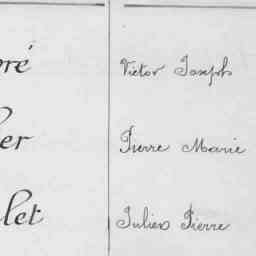 ré Victor Joseph
er Pierre Marie
let Julien Pierre